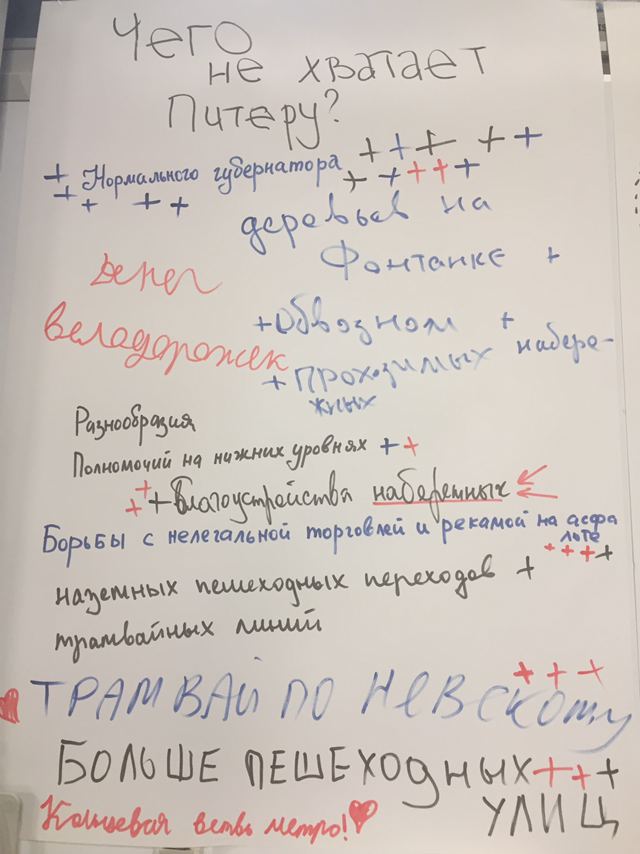 Чего
не хватает
Питеру?
+ Нормального губернатора + + + + +
+ + + + + + + + +
деревьев на
Фонтанке +
Денег
+ Обводном +
велодорожек
+ проходимых набере-
жных
Разнообразия
Полномочий на нижних уровнях + +
+ + + Благоустройства набережных
Борьбы с нелегальной торговлей и рекамой на асфа
лоте
+ + + +
наземных пешеходных переходов +
трамвайных линий
+ + +
ТРАМВАЙ ПО НЕВСКОМУ
БОЛЬШЕ ПЕШЕХОДНЫХ + + +
УЛИЦ
Кольцевая ветвь метро!